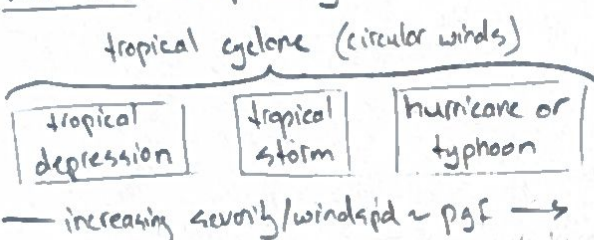 tropical cyclone (circular winds)
tropical depression
tropical storm
hurricane or typhoon
increasing severity/windspd ~ pgf